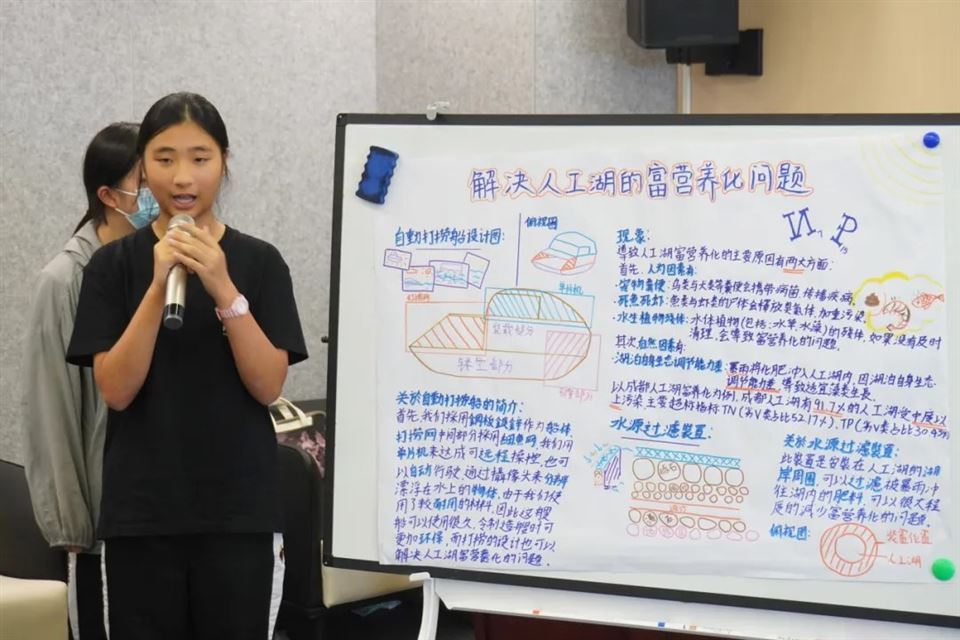 解决人工湖的富营养化问题
自動打捞船设计图:
俯视图
单片机
装载部分
关於自動打捞船的简介:
首先,我们採用鋼板鍍鋅作为船体
打捞网中间部分采用細魚网,我们用
单片机来达成可远程操控,也可
以自动行驶,通过攝像头来分辨
漂浮在水上的物体,由于我们使
用了較耐用的材料,因此这艘
船可以使用很久,令制造船时可
更加环保,而打捞的设计也可以
解决人工湖富营養化的问题。
N, P
现象:
导致人工湖富营養化的主要原因有两大方面:
首先,人为因素有:
·宠物粪便:鸟类与犬类等粪便会携带病菌,传播疾病,
·死魚死虾:魚类与虾类的尸体会释放氨氣体,加重污染,
·水生植物残体:水体植物(包括:水草,水藻)的残体,如果没有及时
清理,会导致富营養化的问题.
其次,自然因素有:
·湖泊自身生态调节能力差:暴雨将化肥冲入人工湖内,因湖泊自身生态
调节能力差,导致适宜藻类生長.
以成都人工湖富营養化为例,成都人工湖有91.7%的人工湖受中度以
上污染,主要超标指标TN(劣V类占比52.17%),TP(劣V类占比30.43%)
水源过滤装置:
关於水源过滤装置:
此装置是安裝在人工湖的湖
岸周圍,可以过滤被暴雨冲
往湖内的肥料,可以很大程
度的减少富营養化的问题.
俯视图:
装置位置
人工湖